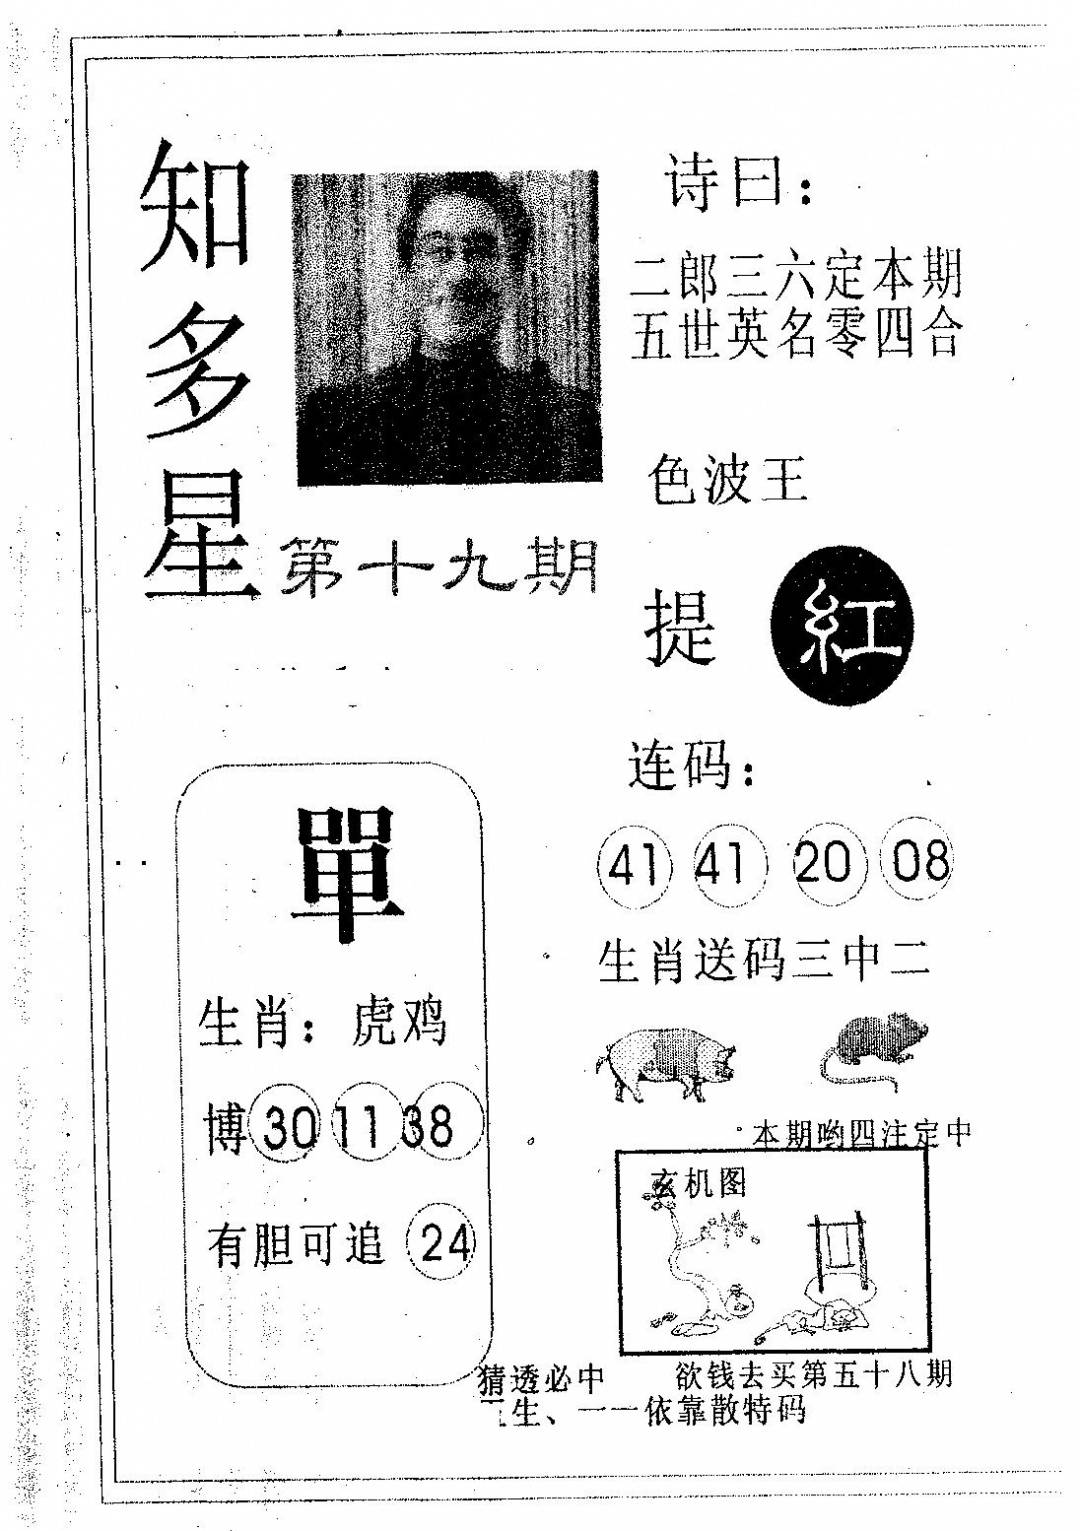 知多星
第十九期
诗曰：
二郎三六定本期
五世英名零四合
色波王
提 紅
连码：
41 41 20 08
生肖送码三中二
單
生肖：虎鸡
博 30 11 38
有胆可追 24
本期哟四注定中
玄机图
猜透必中 欲钱去买第五十八期
生、一一依靠散特码